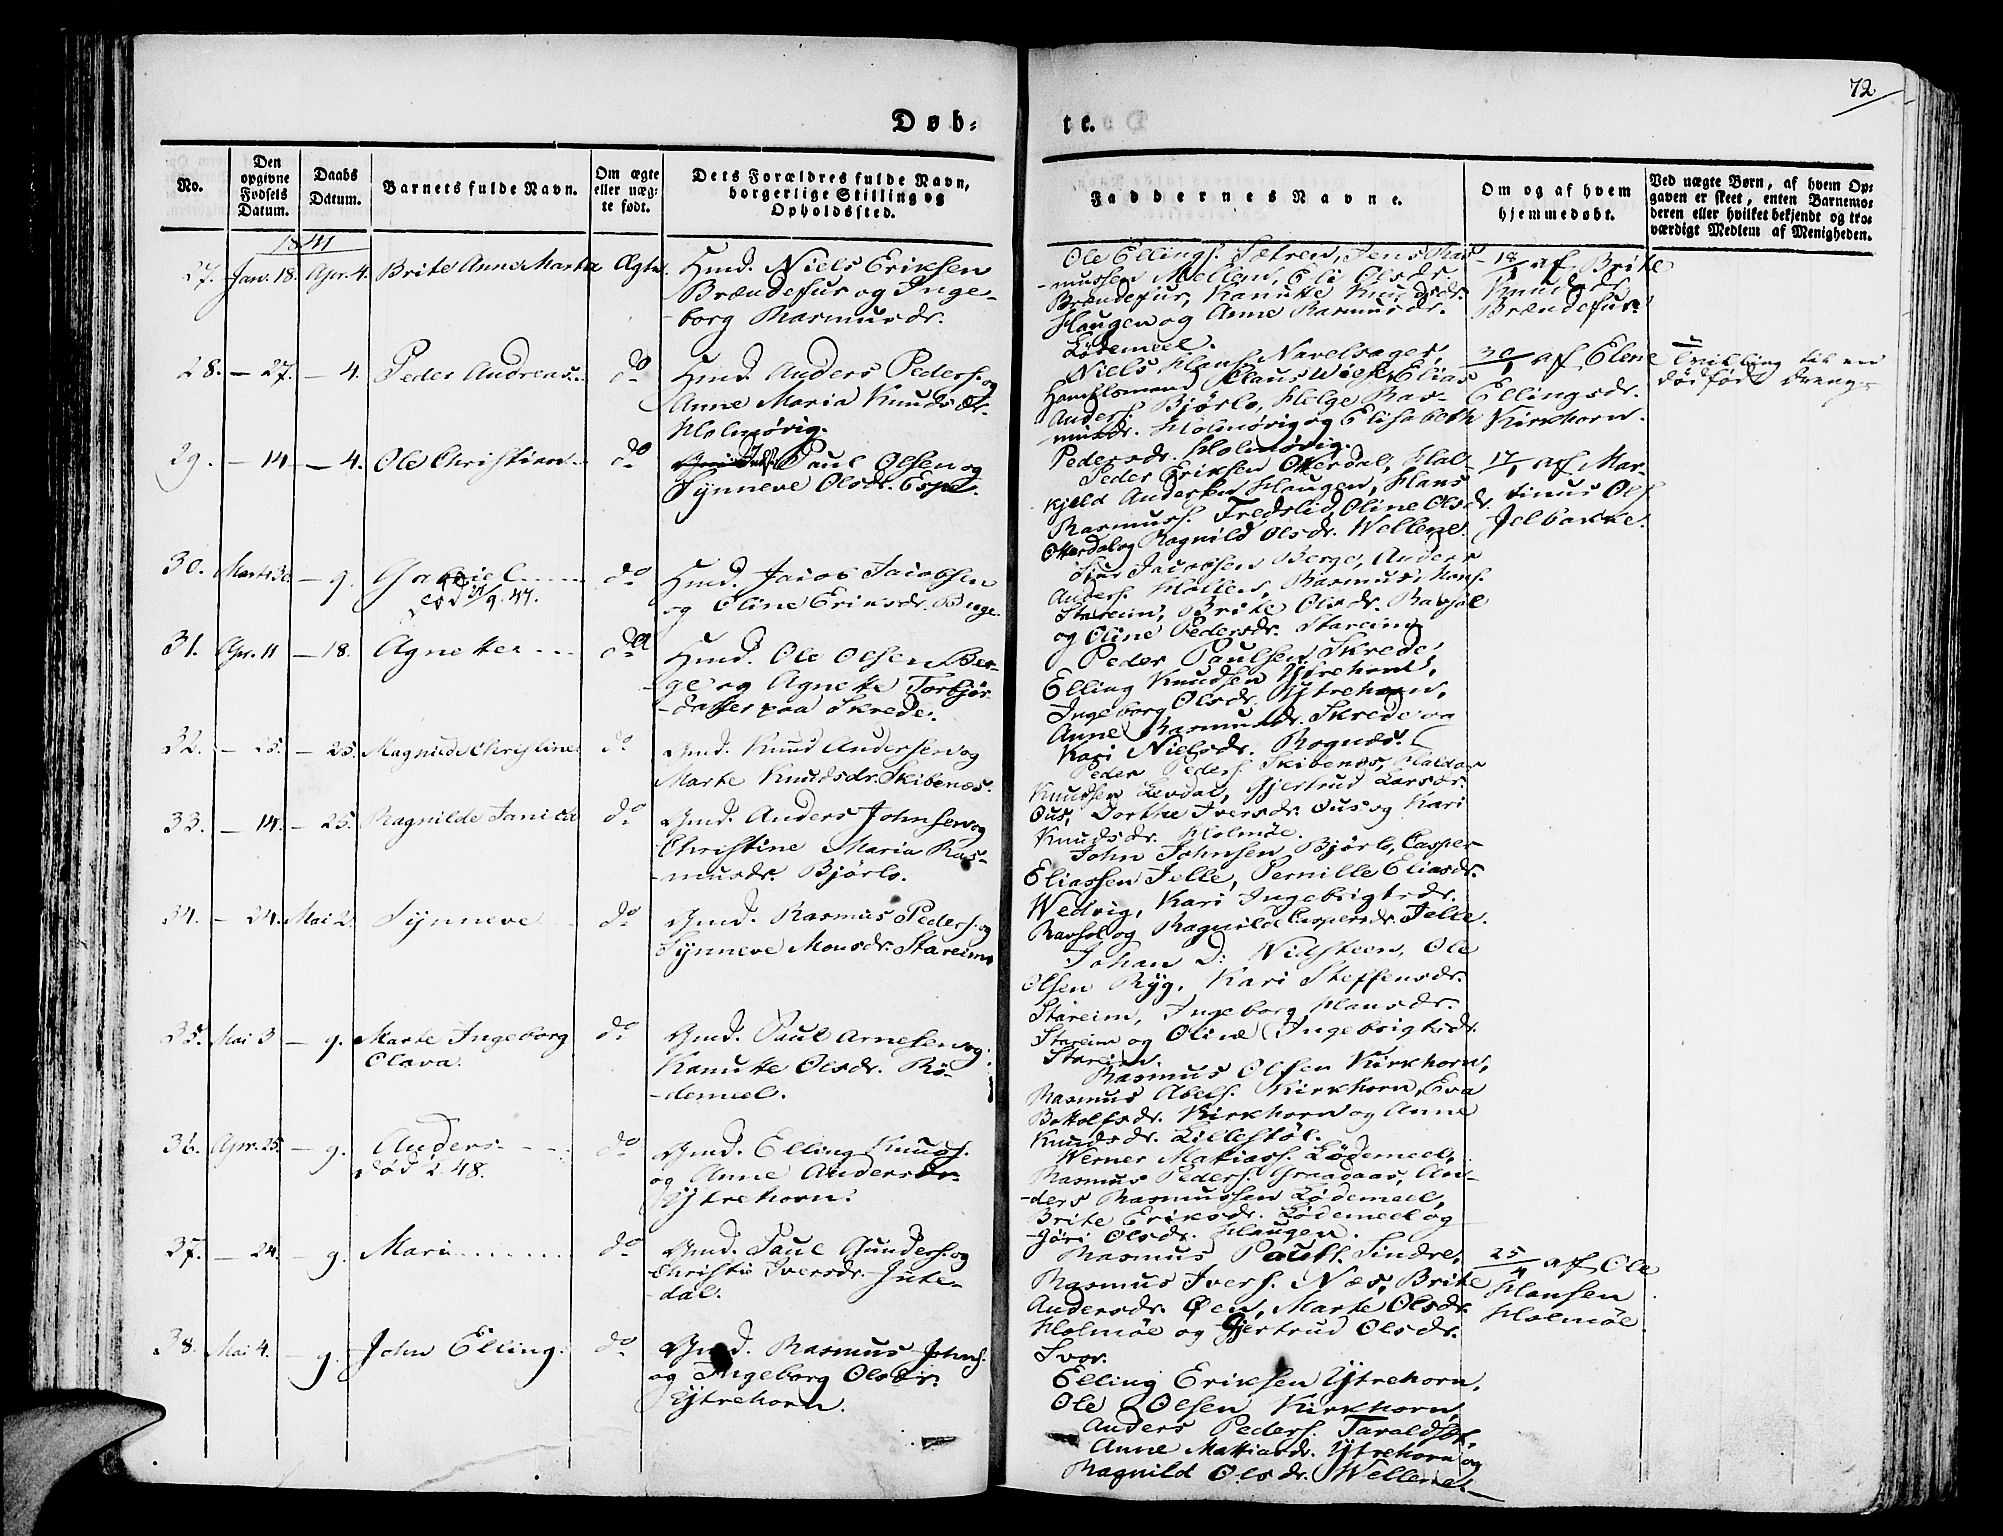 72
Døb-
te.
No.
Den
opgivne
Fødsels
Datum.
Daabs
Datum.
Barnets fulde Navn.
Om ægte
eller uæg-
te født.
Dets Forældres fulde Navn,
borgerlige Stilling og
Opholdssted.
Faddernes Navne.
Om og af hvem
hjemmedøbt.
Ved uægte Børn, af hvem Op-
gaven er skeet, enten Barnemo-
deren eller hvilket bekjendt og tro-
værdigt Medlem af Menigheden.
1841
27. Jan. 18. Apr. 4. Brite Anne Marta Ægte
Gmd. Niels Eriksen
Brændefur og Inge-
borg Rasmusdr.
Ole Ellings. Sætren, Jens Ras-
mussen Mellem, Eli Olsdr.
Brændefur, Kanutte Knudsdr.
Haugen og Anne Rasmusdr.
Lødemeel.
18/1 af Brite
Knudsdr.
Brændefur.
28. – 27. – 4. Peder Andreas do
Gmd. Anders Peders. og
Anne Maria Knudsdr.
Holmøvig.
Niels Hans. Navelsager,
Klaus Elias
Anders. Bjørlo, Helge Ras-
musdr. Holmøvig og Elisabeth
Pedersdr. Holmøvig.
30/1 af Elene
Ellingsdr.
Kirkhorn.
Tvilling til en
dødfødt dreng
29. – 14. – 4. Ole Christian do
Paul Olsen og
Synneve Olsdr. Espe.
Peder Eriksen Otterdal, Hal-
kjeld Andersen Haugen, Hans
Rasmuss. Fredslid, Oline Olsdr.
Otterdal og Ragnild Olsdr. Wellene.
17/1 af Mar-
tinus Ols.
Jelbakke.
30. Marts 30. – 9. Gabriel do
død 9. 47.
Gmd. Jacob Jacobsen
og Oline Eriksdr. Berge
Jacobsen Berge, Anders
Anders. Hollen, Rasmus Hans.
Stareim, Brite Olsdr. Ravsøl
og Oline Pedersdr. Stareim
31. Apr. 11 – 18. Agnette do
Gmd. Ole Olsen Ber-
ge og Agnette Torbjør-
datter paa Skrede.
Peder Paulsen Skrede,
Elling Knudsen Ytrehorn,
Ingeborg Olsdr. Ytrehorn,
Anne Rasmusdr. Skrede og
Kari Nielsdr. Rognæs.
32. – 25. – 25. Magnilde Christine do
Gmd. Knud Andersen og
Marte Knudsdr. Skibenæs.
Peder Peders. Skibenæs, Haldor
Knudsen Levdal, Gjertrud Larsdr.
Ous, Dorthe Iversdr. Ous og Kari
Knudsdr. Holmøe.
33. – 14. – 25. Ragnilde Janikd do
Gmd. Anders Johnsen og
Christine Maria Ras-
musdr. Bjørlo.
John Johnsen Bjørlo, Casper
Eliassen Jelle, Pernille Eliasdr.
Wedvig, Kari Ingebrigtsdr.
Ravsøl og Ragnilde Caspersdr. Jelle.
34. – 24. Mai 2. Synneve do
Gmd. Rasmus Peders. og
Synneve Monsdr. Stareim
Johan D. Nidsteen, Ole
Olsen Ryg, Kari Steffensdr.
Stareim, Ingeborg Hansdr.
Stareim og Oline Ingebrigtsdr.
Stareim.
35. Mai 3 – 9. Marte Ingeborg do
Olava.
Gmd. Paul Arnesen og
Kanutte Olsdr. Rø-
demeel.
Rasmus Olsen Kirkhorn,
Rasmus Abels. Kirkhorn, Eva
Bottolfsdr. Kirkhorn og Anne
Knudsdr. Lillestøl.
36. Apr. 25. – 9. Anders do
død 2. 48.
Gmd. Elling Knuds.
og Anne Andersdr.
Ytrehorn.
Werner Mathias. Lødemeel,
Rasmus Peders. Graadaas, An-
ders Rasmussen Lødemeel,
Brite Eriksdr. Lødemeel og
Gjøri Olsdr. Haugen.
37. – 24. – 9. Mari do
Gmd. Paul Gunders. og
Christi Iversdr. Jute-
dal.
Rasmus Pauls. Sindre,
Rasmus Ivers. Næs, Brite
Andersdr. Øen, Marte Olsdr.
Holmøe og Gjertrud Olsdr.
Svor.
25/4 af Ole
Hansen
Holmøe
38. Mai 4. – 9. John Elling. do
Gmd. Rasmus Johns.
og Ingeborg Olsdr.
Ytrehorn.
Elling Eriksen Ytrehorn,
Ole Olsen Kirkhorn,
Anders Peders. Taraldset,
Anne Mattiasdr. Ytrehorn og
Ragnild Olsdr. Wellene.